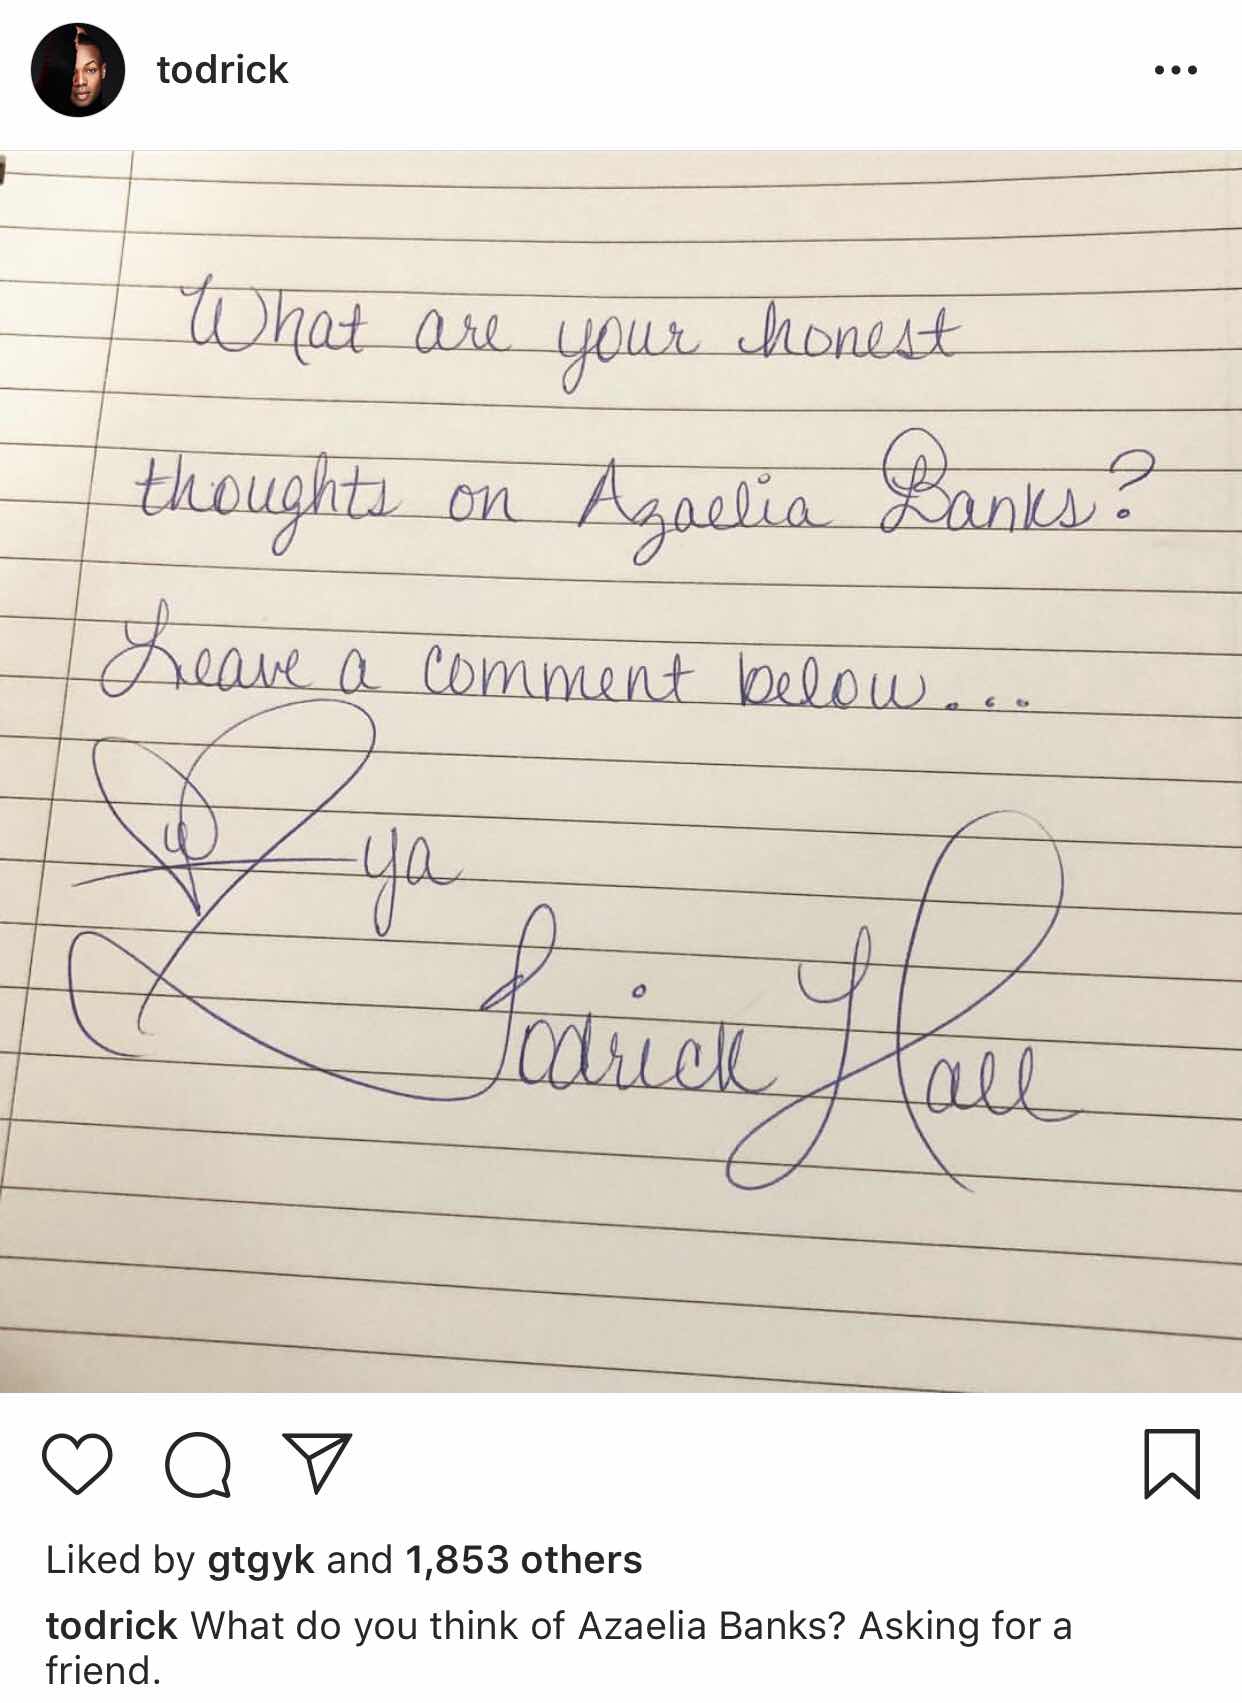 todrick
What are your honest
thoughts on Azaelia Banks?
Leave a comment below...
ya
Todrick Hall
Liked by gtgyk and 1,853 others
todrick What do you think of Azaelia Banks? Asking for a
friend.